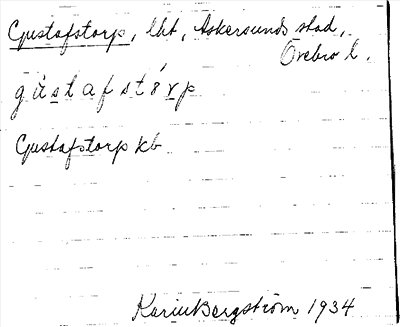 Gustafstorp, lht, Askersunds stad,
Örebro l.
gu̇stafstórp
Gustafstorp kb
Karin Bergström 1934